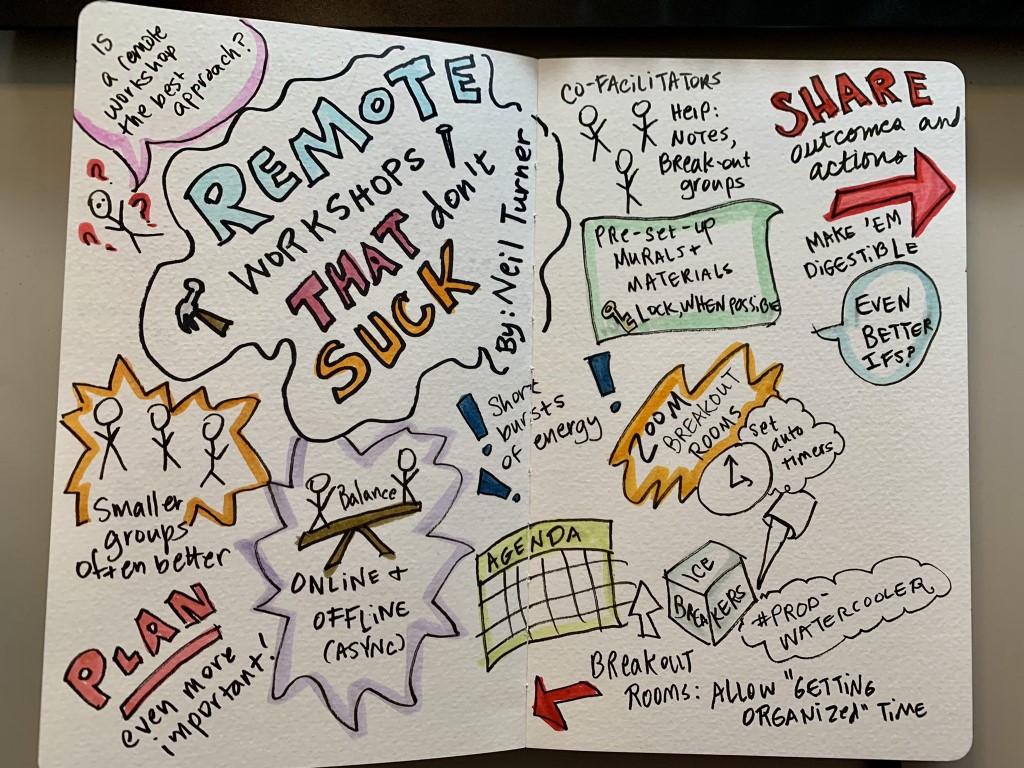 IS
a remote
workshop
the best
approach?
REMOTE
WORKSHOPS
THAT don't
SUCK
By: Neil Turner
? ? ?
Smaller
groups
often better
Balance
ONLINE +
OFFLINE
(ASYNC)
PLAN
even more
important!
! Short !
bursts
of energy
!
AGENDA
CO-FACILITATORS
HELP:
NOTES,
BREAK-OUT
groups
PRE-SET-UP
MURALS +
MATERIALS
LOCK, WHEN POSSIBLE
SHARE
outcomes and
actions
MAKE 'EM
DIGESTIBLE
EVEN
BETTER
IFS?
ZOOM
BREAKOUT
ROOMS
set
auto
timers
ICE
BREAKERS
#PROD-
WATERCOOLER
BREAKOUT
ROOMS: ALLOW "GETTING
ORGANIZED" TIME